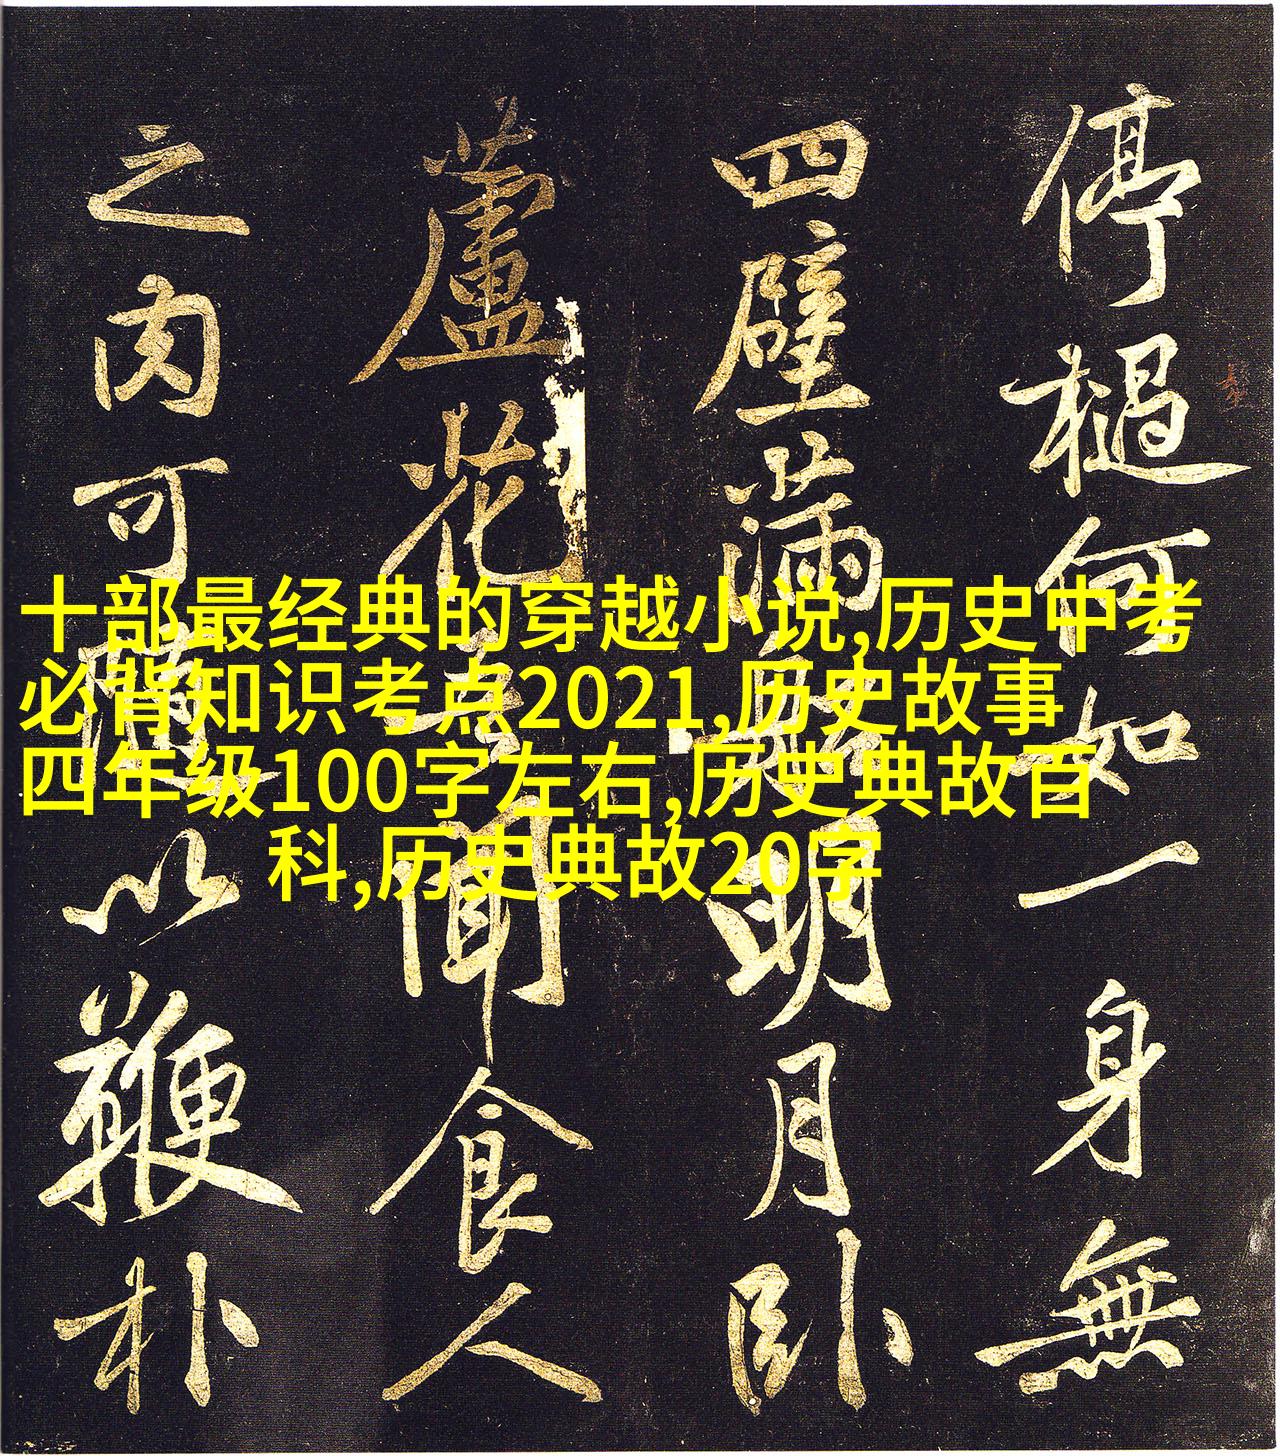 十部最经典的穿越小说,历史中考
必背知识考点2021,历史故事
四年级100字左右,历史典故百
科,历史典故20字
停檛何如一身無
四壁滿船明月卧
蘆花吾聞食人
之肉可隨以鞭朴